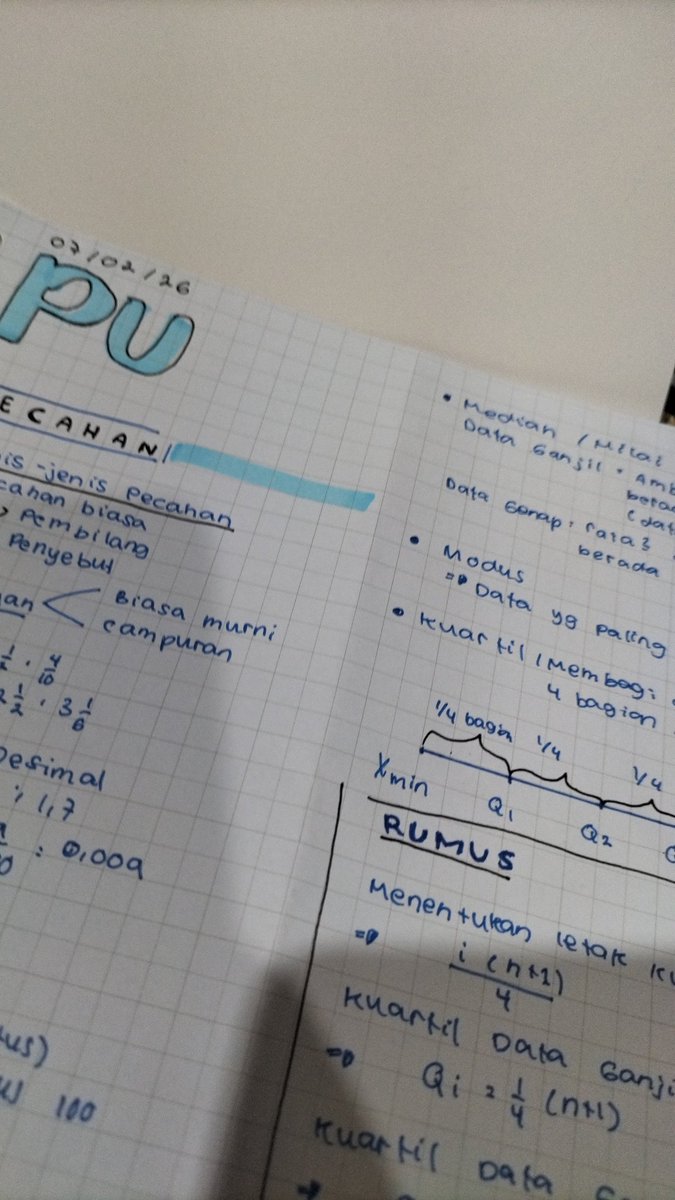 07/02/26
PU
ECAHAN
is-jenis pecahan
cahan biasa
Pembilang
Penyebut
an
Biasa murni
campuran
1/2 . 4/10
2 1/2 . 3 1/6
Desimal
; 1,7
: 0,009
us)
100
• Median / Nilai
Data Ganjil : Amb
bera
(dat
Data Genap : rata2
berada
• Modus
=> Data yg paling
• Kuartil / Membagi
4 bagian
1/4 bagian 1/4 1/4
Xmin Q1 Q2
RUMUS
Menentukan letak ku
=> i (n+1)/4
Kuartil Data Ganji
=> Qi = 1/4 (n+1)
Kuartil Data G